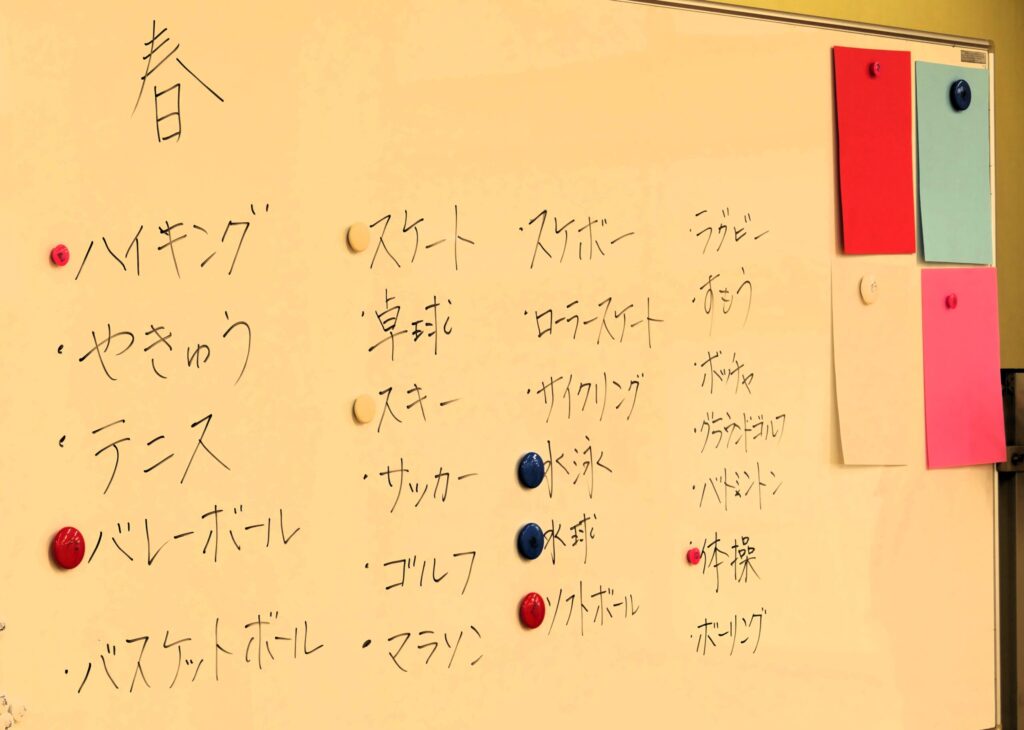 春
・ハイキング
・やきゅう
・テニス
バレーボール
・バスケットボール
スケート
・卓球
スキー
・サッカー
・ゴルフ
・マラソン
・スケボー
・ローラースケート
・サイクリング
水泳
水球
ソフトボール
・ラグビー
・すもう
・ボッチャ
・グラウンドゴルフ
・バトミントン
・体操
・ボーリング